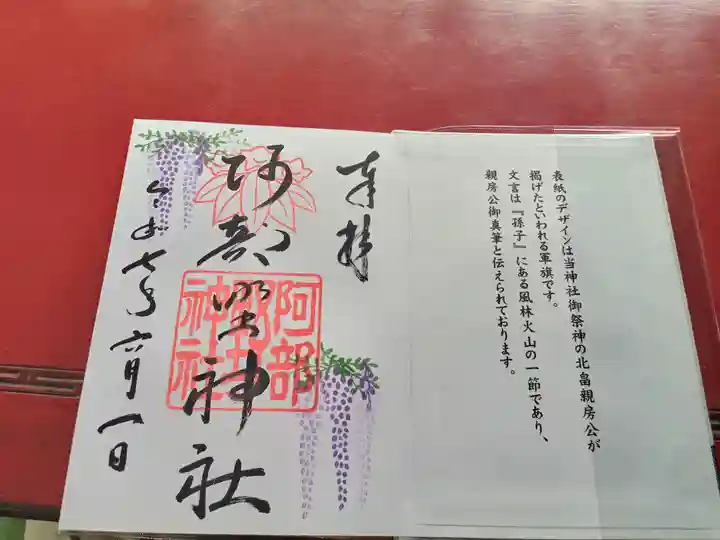 表紙のデザインは当神社御祭神の北畠親房公が
掲げたといわれる軍旗です。
文言は『孫子』にある風林火山の一節であり、
親房公御真筆と伝えられております。
奉拝
阿部野神社
阿部
野
神社
令和七年六月一日